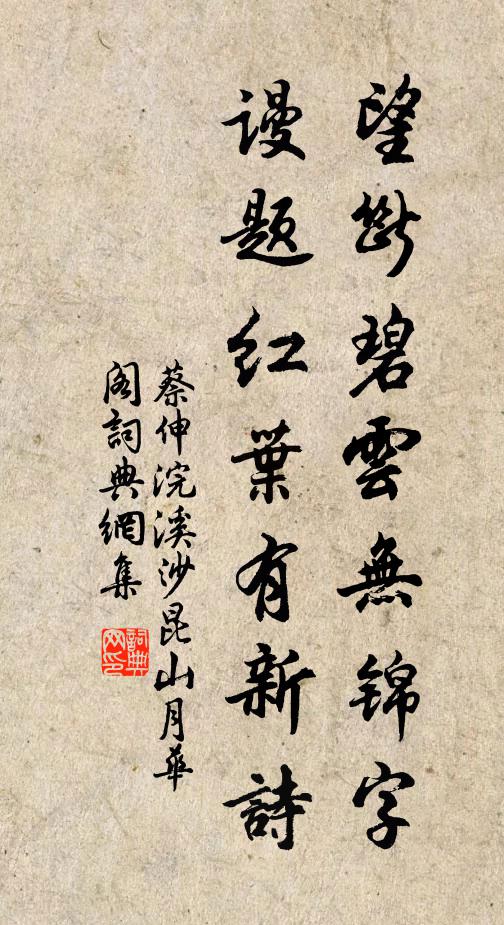 望斷碧雲無錦字
謾題紅葉有新詩
蔡伸浣溪沙昆山月華
閣詞典網集
詞典网印